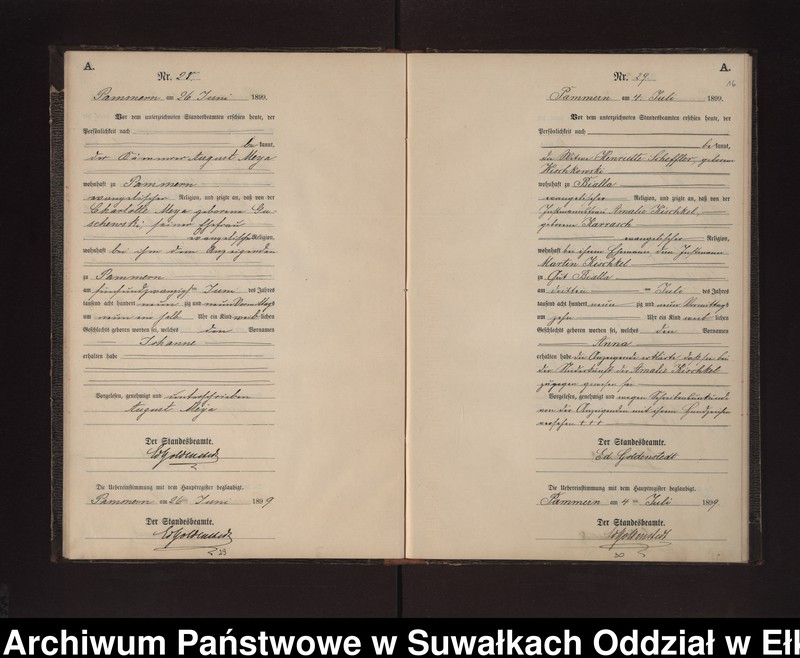 A.
Nr. 28.
Pammern am 26 Juni 1899.
Vor dem unterzeichneten Standesbeamten erschien heute, der
Persönlichkeit nach
be kannt,
der Kämmerer August Meya
wohnhaft zu Pammern
evangelischer Religion, und zeigte an, daß von der
Charlotte Meya geborene
seiner Ehefrau
evangelischer Religion,
wohnhaft bei ihm dem Anzeigenden
zu Pammern
am fünfundzwanzigsten Juni des Jahres
tausend acht hundert neun zig und neun Vormittags
um neun ein halb Uhr ein Kind weib lichen
Geschlechts geboren worden sei, welches den Vornamen
Johanne
erhalten habe
Vorgelesen, genehmigt und unterschrieben
August Meya
Der Standesbeamte.
Ed Goldenstedt
Die Uebereinstimmung mit dem Hauptregister beglaubigt.
Pammern am 26 Juni 1899
Der Standesbeamte.
Ed Goldenstedt
A.
Nr. 29.
Pammern am 4. Juli 1899.
Vor dem unterzeichneten Standesbeamten erschien heute, der
Persönlichkeit nach
be kannt,
die Witwe Henriette Scheffler, geborene
wohnhaft zu Bialla
evangelischer Religion, und zeigte an, daß von der
Instmannsfrau Amalie Kischkel,
geborene Karrasch
evangelischer Religion,
wohnhaft bei ihrem Ehemann dem Instmann
Martin Kischkel
zu Gut Bialla
am dritten Juli des Jahres
tausend acht hundert neun zig und neun Vormittags
um zehn Uhr ein Kind weib lichen
Geschlechts geboren worden sei, welches den Vornamen
Anna
erhalten habe die Anzeigende erklärte daß sie bei
der Niederkunft der Amalie Kischkel
zugegen gewesen sei
Vorgelesen, genehmigt und wegen Schreibensunkunde
von der Anzeigenden mit ihrem Handzeichen
versehen + + +
Der Standesbeamte.
Ed Goldenstedt
Die Uebereinstimmung mit dem Hauptregister beglaubigt.
Pammern am 4ten Juli 1899.
Der Standesbeamte.
Ed Goldenstedt
Archiwum Państwowe w Suwałkach Oddział w Ełk